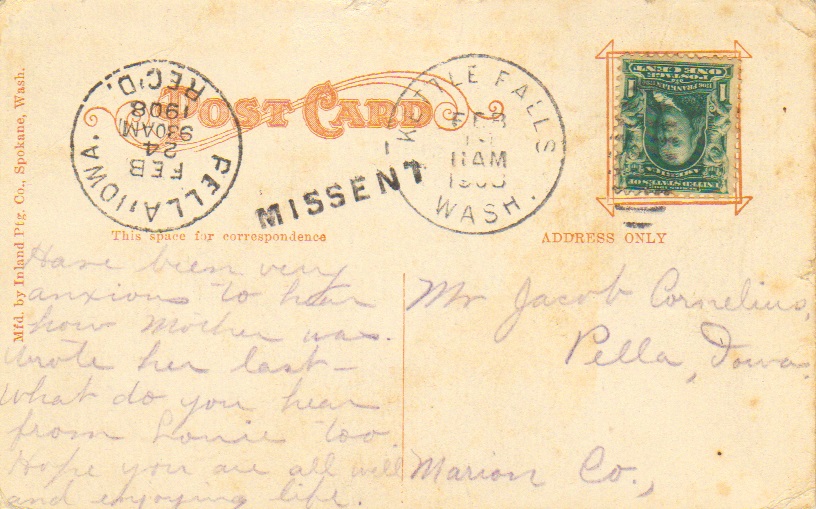 POST CARD
PELLA, IOWA.
FEB
24
930AM
1908
REC'D.
MISSENT
KETTLE FALLS
FEB
11AM
WASH.
ONE CENT
POSTAGE
1 1
UNITED STATES OF
AMERICA
This space for correspondence
ADDRESS ONLY
Mfd. by Inland Ptg. Co., Spokane, Wash.
Have been very
anxious to hear
how Mother was.
Wrote her last –
What do you hear
from Louie too
Hope you are all well
and enjoying life.
Mr Jacob Cornelius,
Pella, Iowa
Marion Co.,